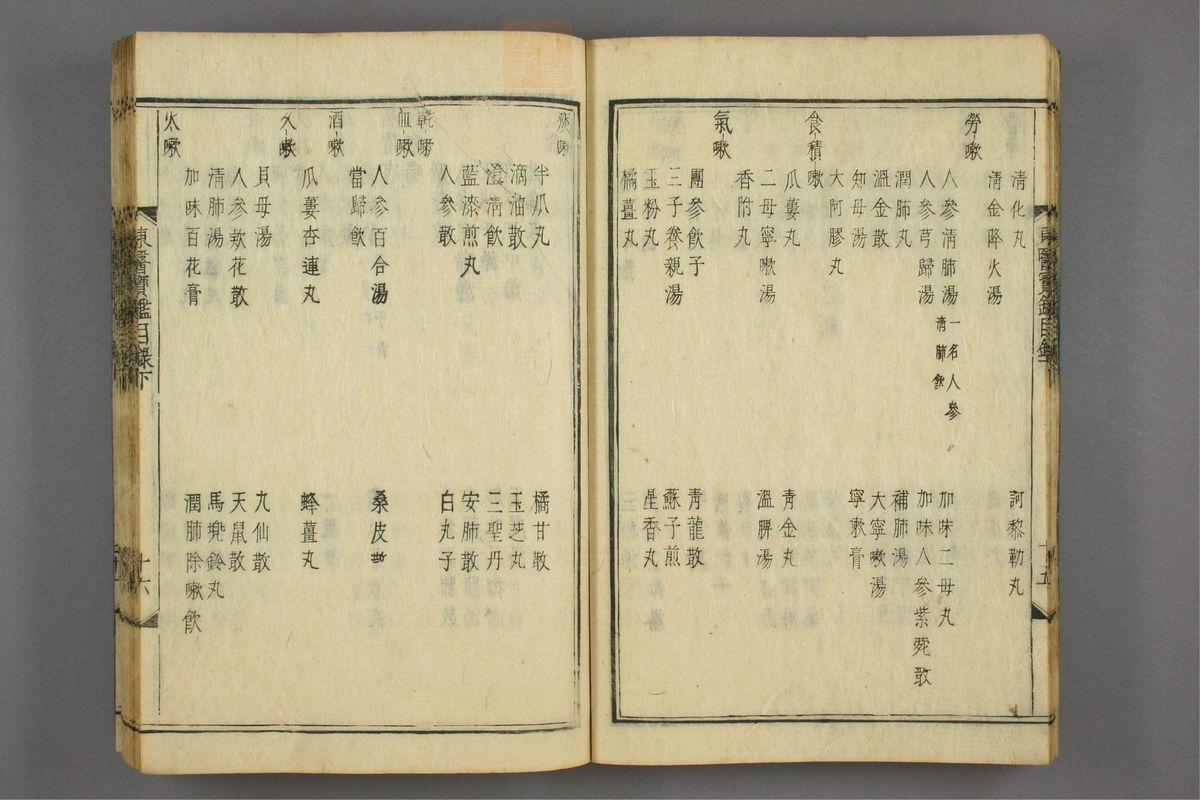 淸化丸 訶黎勒丸
淸金降火湯
勞嗽
人參淸肺湯 一名人參淸肺飮 加味二母丸
人參芎歸湯 加味人參紫菀散
潤肺丸 補肺湯
溫金散 大寧嗽湯
知母湯 寧嗽膏
大阿膠丸
食積嗽
瓜蔞丸 靑金丸
二母寧嗽湯 溫脾湯
香附丸
氣嗽
團參飮子 靑龍散
三子養親湯 蘇子煎
玉粉丸 星香丸
橘薑丸
東醫寶鑑目錄下
十五
痰嗽
半瓜丸 橘甘散
滴油散 玉芝丸
澄淸飮 三聖丹
藍漆煎丸 安肺散
人參散 白丸子
乾嗽
血嗽
人參百合湯 桑皮散
當歸飮
酒嗽
瓜蔞杏連丸 蜂薑丸
久嗽
貝母湯 九仙散
人參款花散 天鼠散
淸肺湯 馬兜鈴丸
加味百花膏 潤肺除嗽飮
火嗽
東醫寶鑑目錄下
十六